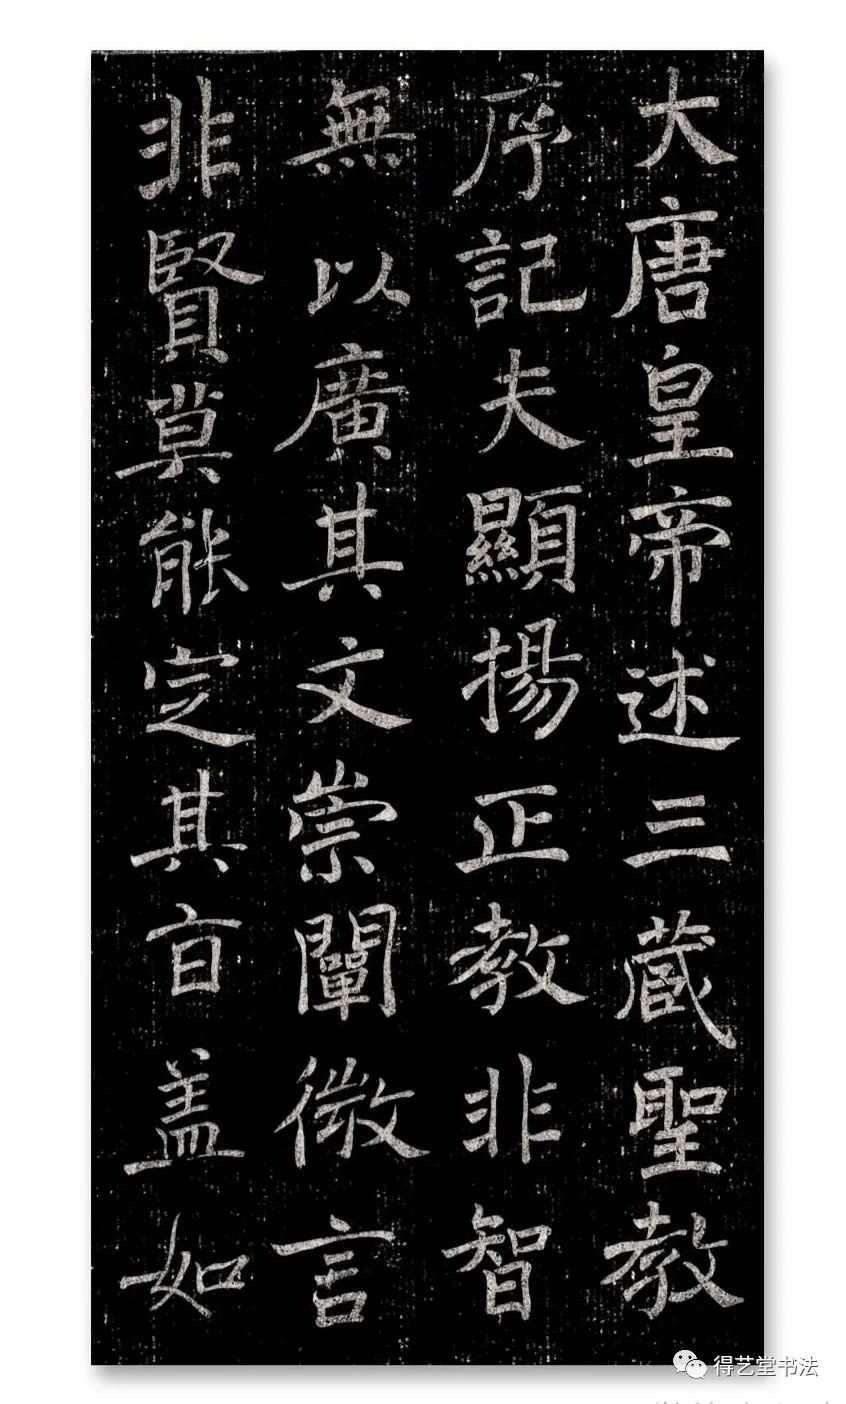 大唐皇帝述三蔵聖教
序記夫顯揚正教非智
無以廣其文崇闡微言
非賢莫能定其㫖盖如
得艺堂书法